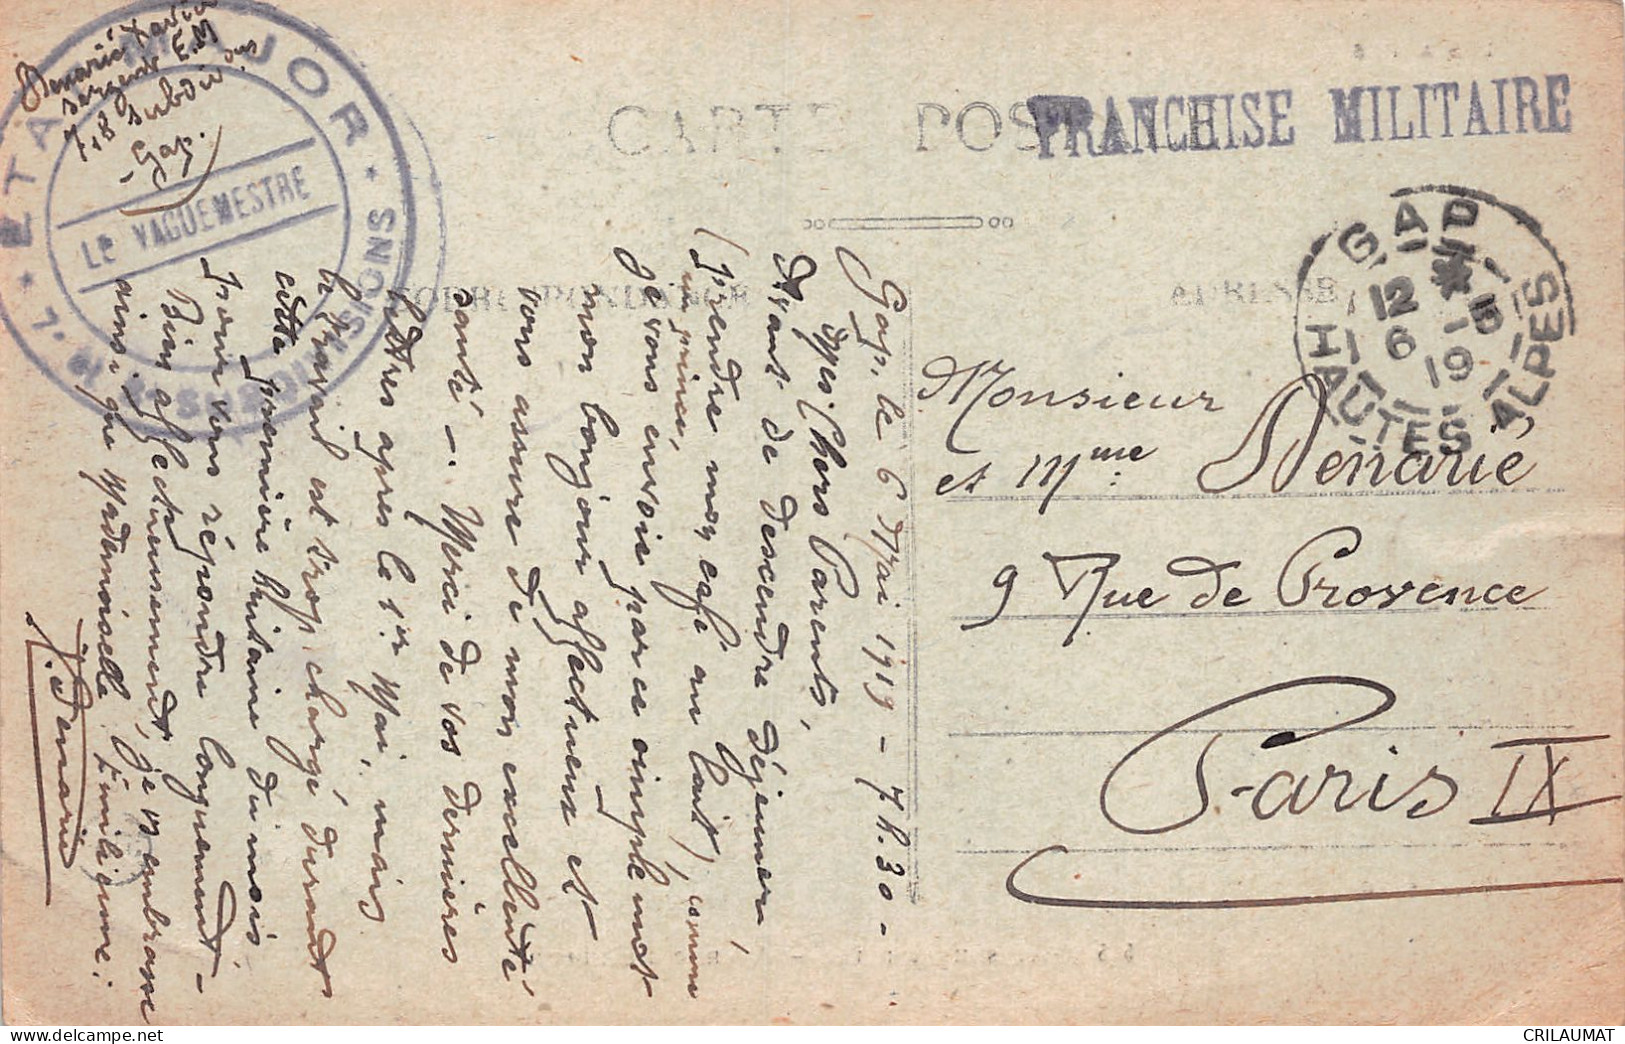 Denarié Xavier
sergent E.M
7 & 8 subdivions
Gap.
ETAT MAJOR
Le VAGUEMESTRE
SUBDIVISIONS
CARTE POSTALE
FRANCHISE MILITAIRE
CORRESPONDANCE
ADRESSE
GAP
12 *
6 - 5
19
HAUTES ALPES
Gap, le 6 Mai 1919 - 7h.30 -
Mes Chers Parents,
Avant de descendre déjeuner
(prendre mon café au lait), comme
un prince,
je vous envoie par ce simple mot
mon bonjour affectueux et
vous assure de mon excellente
santé -. Merci de vos dernières
lettres après le 1er Mai, mais
le travail est trop chargé durant
cette première huitaine du mois
pour vous répondre longuement -
Bien affectueusement, je vs embrasse
ainsi que Mademoiselle
X. Denarié
Monsieur
et Mme Denarié
9 Rue de Provence
Paris IX
CRILAUMAT